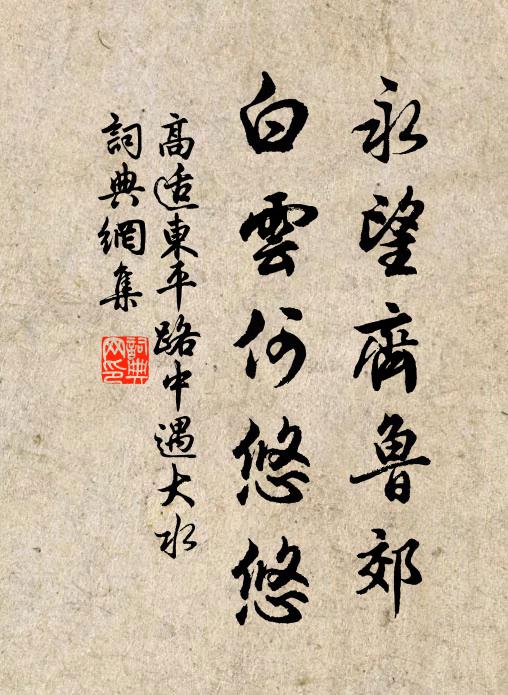 永望齊魯郊
白雲何悠悠
高适東平路中遇大水
詞典網集
詞典網印